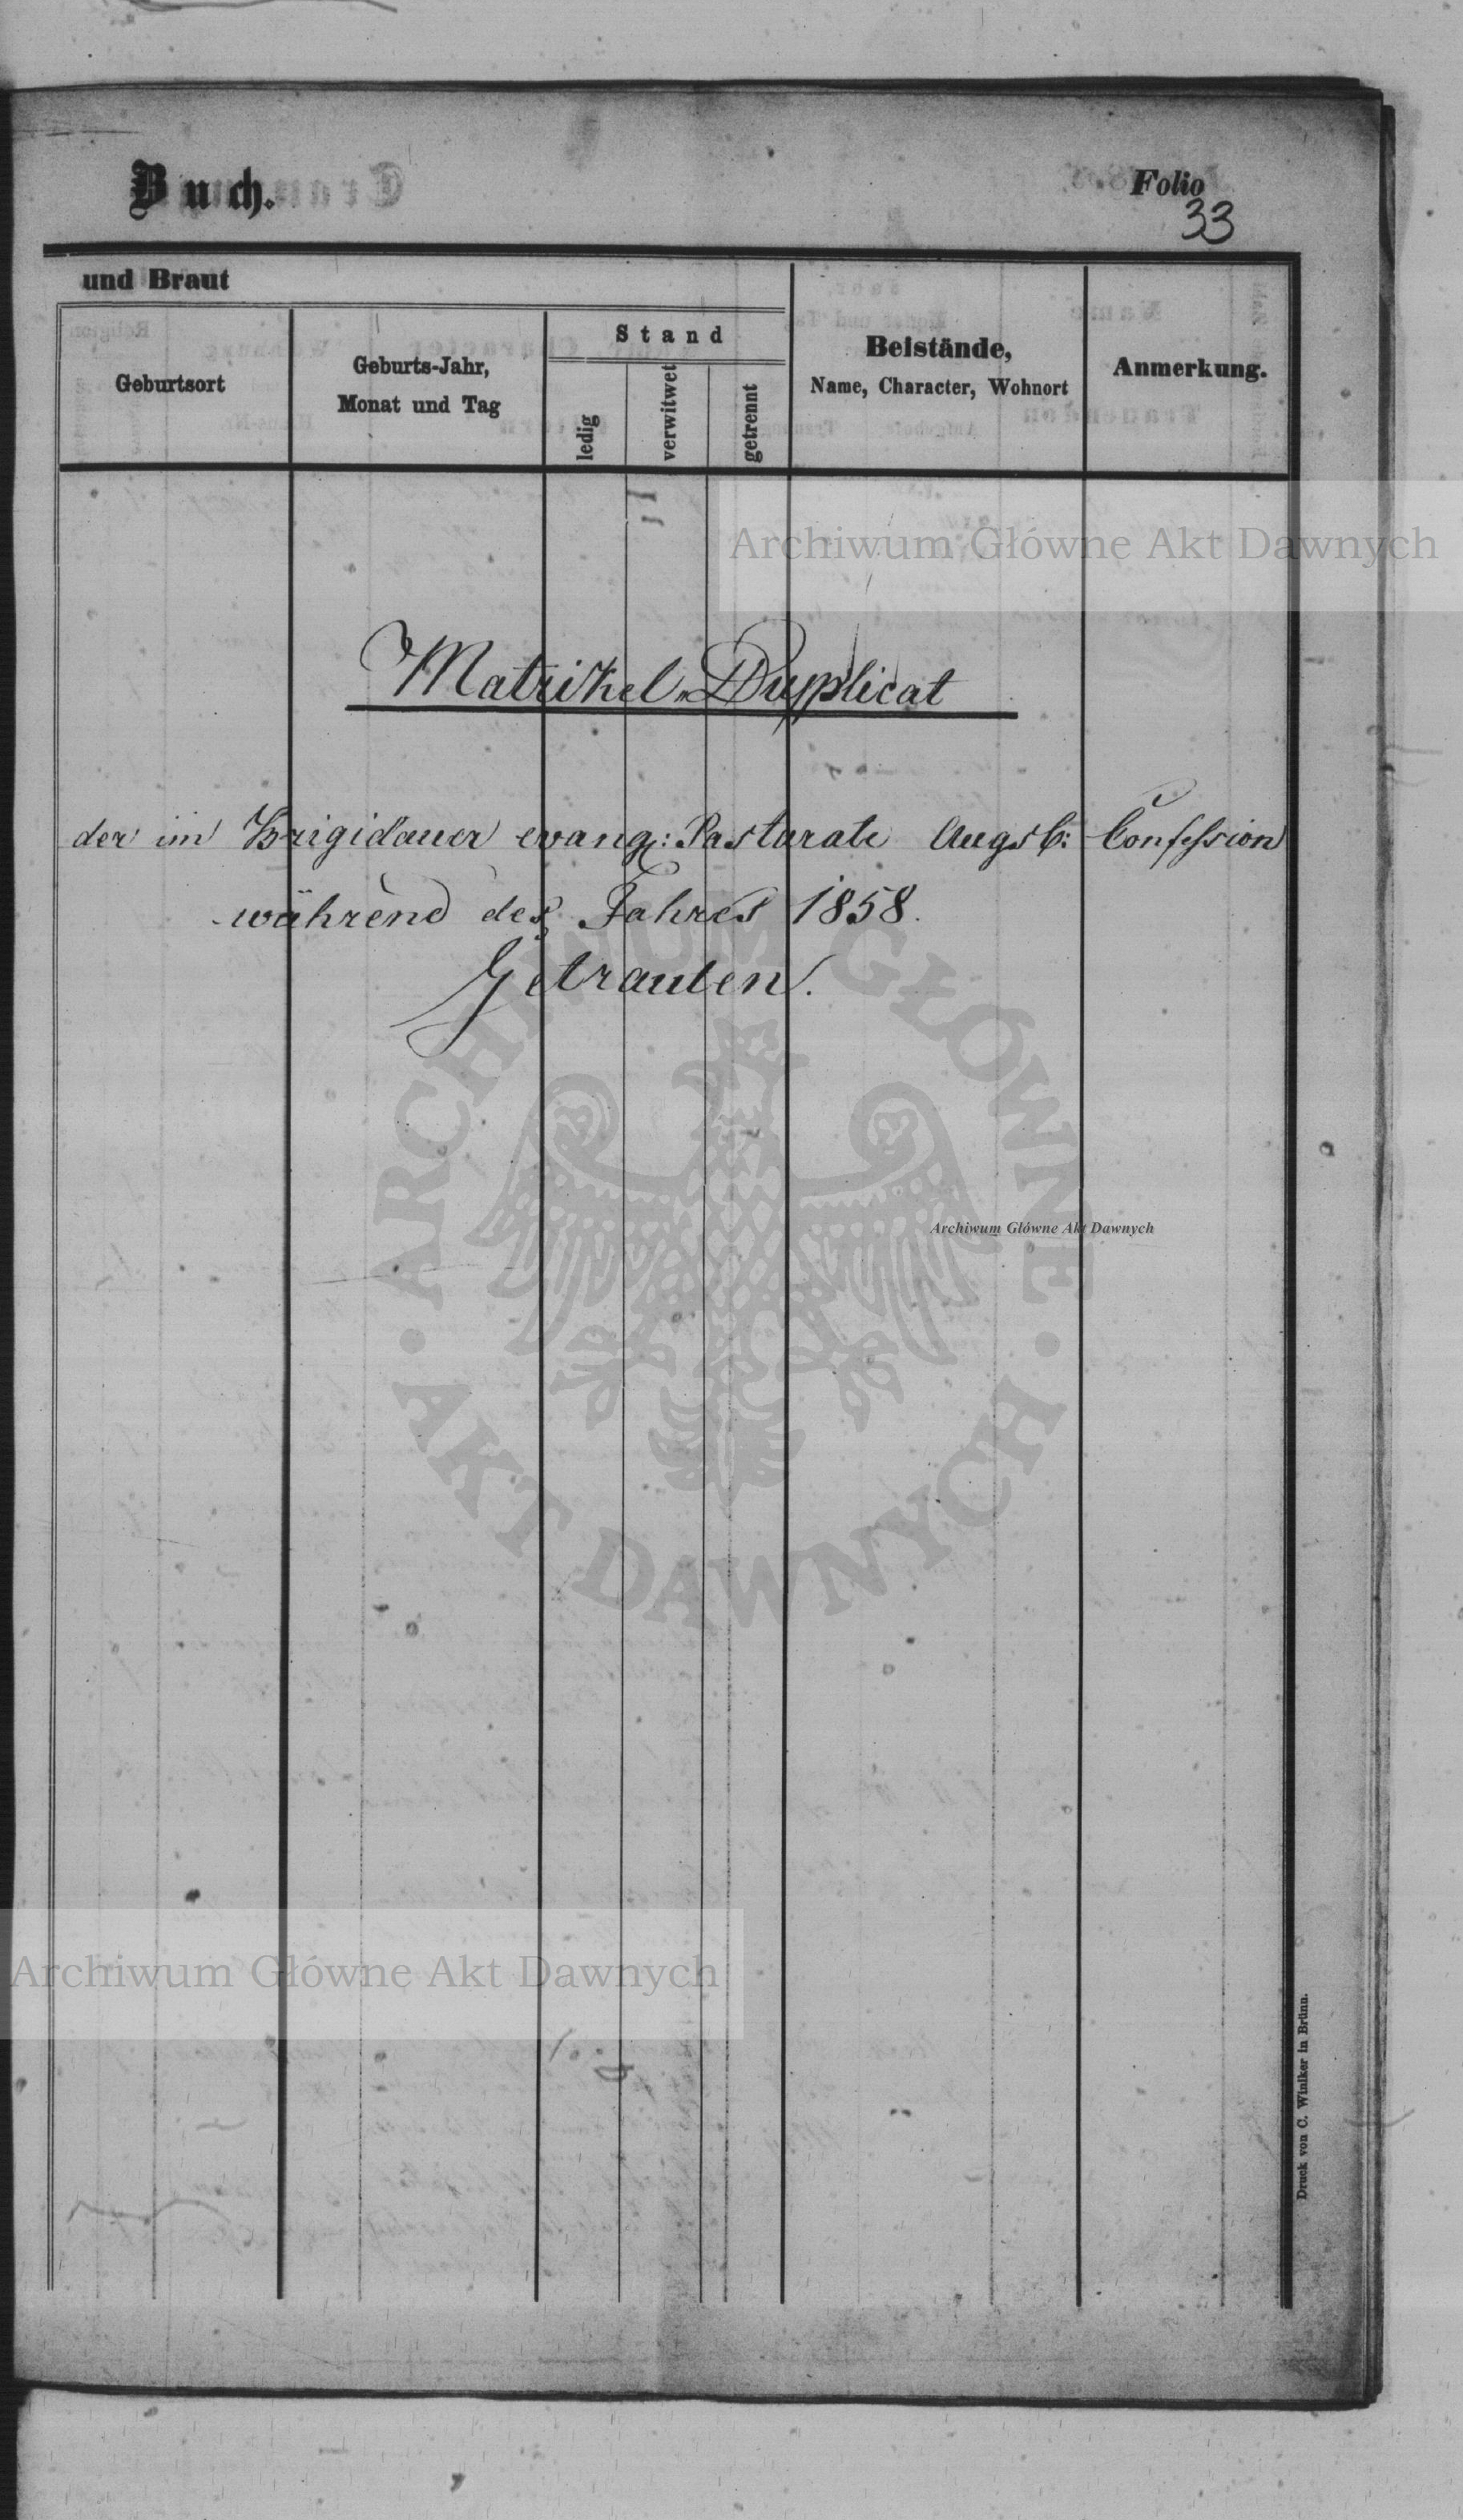 Buch.
Folio
33
und Braut
Geburtsort
Geburts-Jahr,
Monat und Tag
Stand
ledig
verwitwet
getrennt
Beistände,
Name, Character, Wohnort
Anmerkung.
Archiwum Główne Akt Dawnych
Matrikel-Duplicat
der im Brigidauer evang: Pastorate Augsb: Confession
während des Jahres 1858.
Getrauten.
ARCHIWUM GŁÓWNE
Archiwum Główne Akt Dawnych
AKT DAWNYCH
Archiwum Główne Akt Dawnych
Druck von C. Winiker in Brünn.